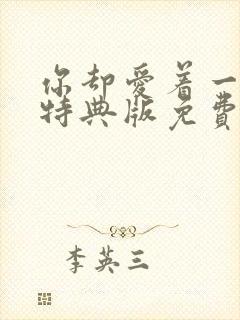 你却爱着一
特典版免费
李英三